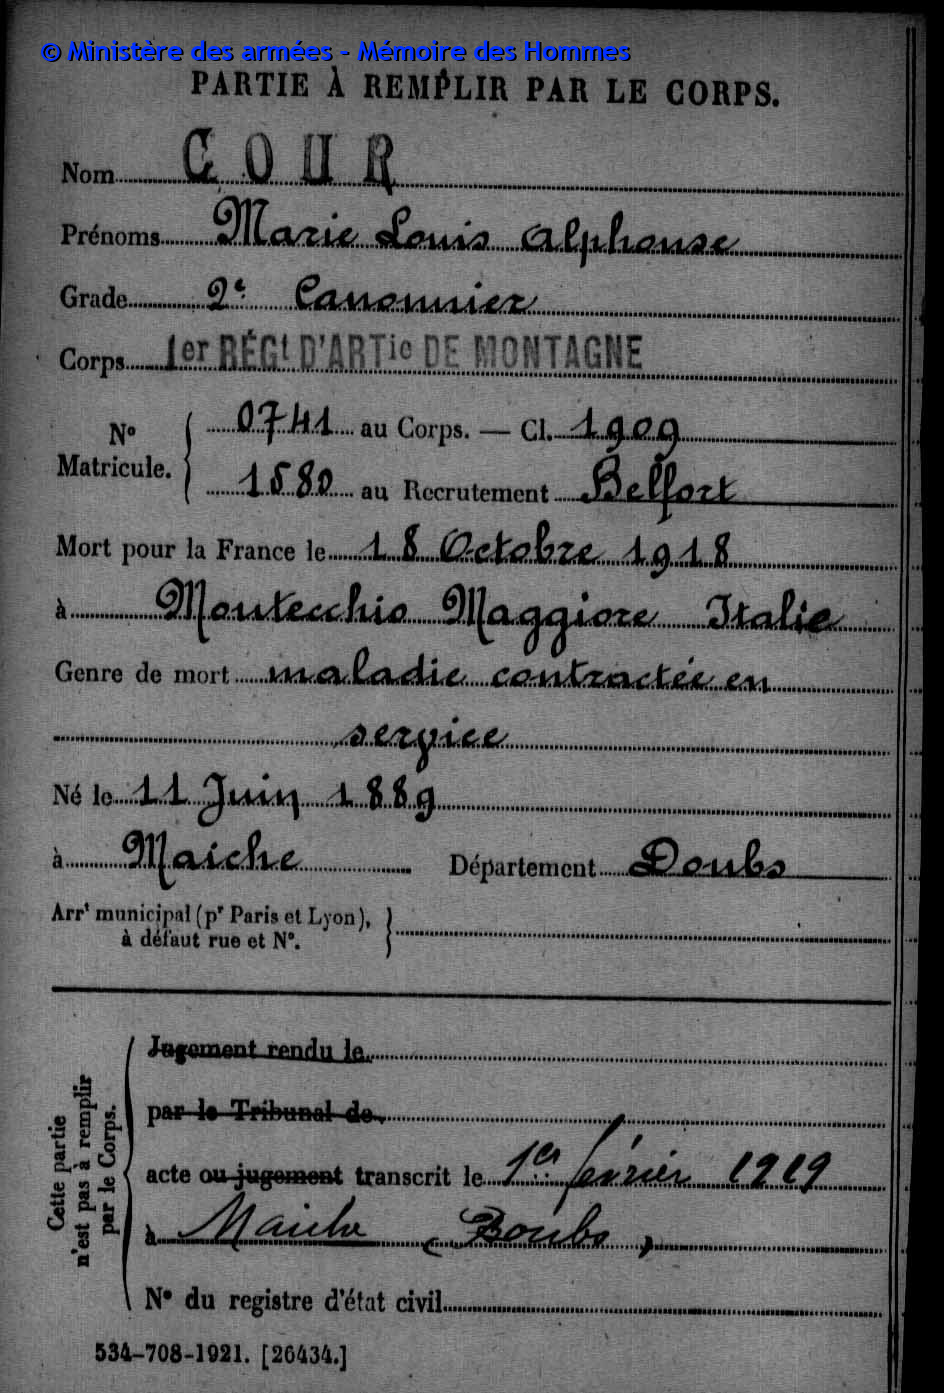 © Ministère des armées - Mémoire des Hommes
PARTIE À REMPLIR PAR LE CORPS.
Nom COUR
Prénoms Marie Louis Alphonse
Grade 2e Canonnier
Corps 1er RÉGt D'ARTie DE MONTAGNE
No Matricule. { 0741 au Corps. — Cl. 1909
1580 au Recrutement Belfort
Mort pour la France le 18 Octobre 1918
à Montecchio Maggiore Italie
Genre de mort maladie contractée en
service
Né le 11 Juin 1889
à Maiche Département Doubs
Arrt municipal (pr Paris et Lyon), à défaut rue et No. }
Cette partie n'est pas à remplir par le Corps.
Jugement rendu le
par le Tribunal de
acte ou jugement transcrit le 1er février 1919
à Maiche (Doubs)
No du registre d'état civil
534-708-1921. [26434.]